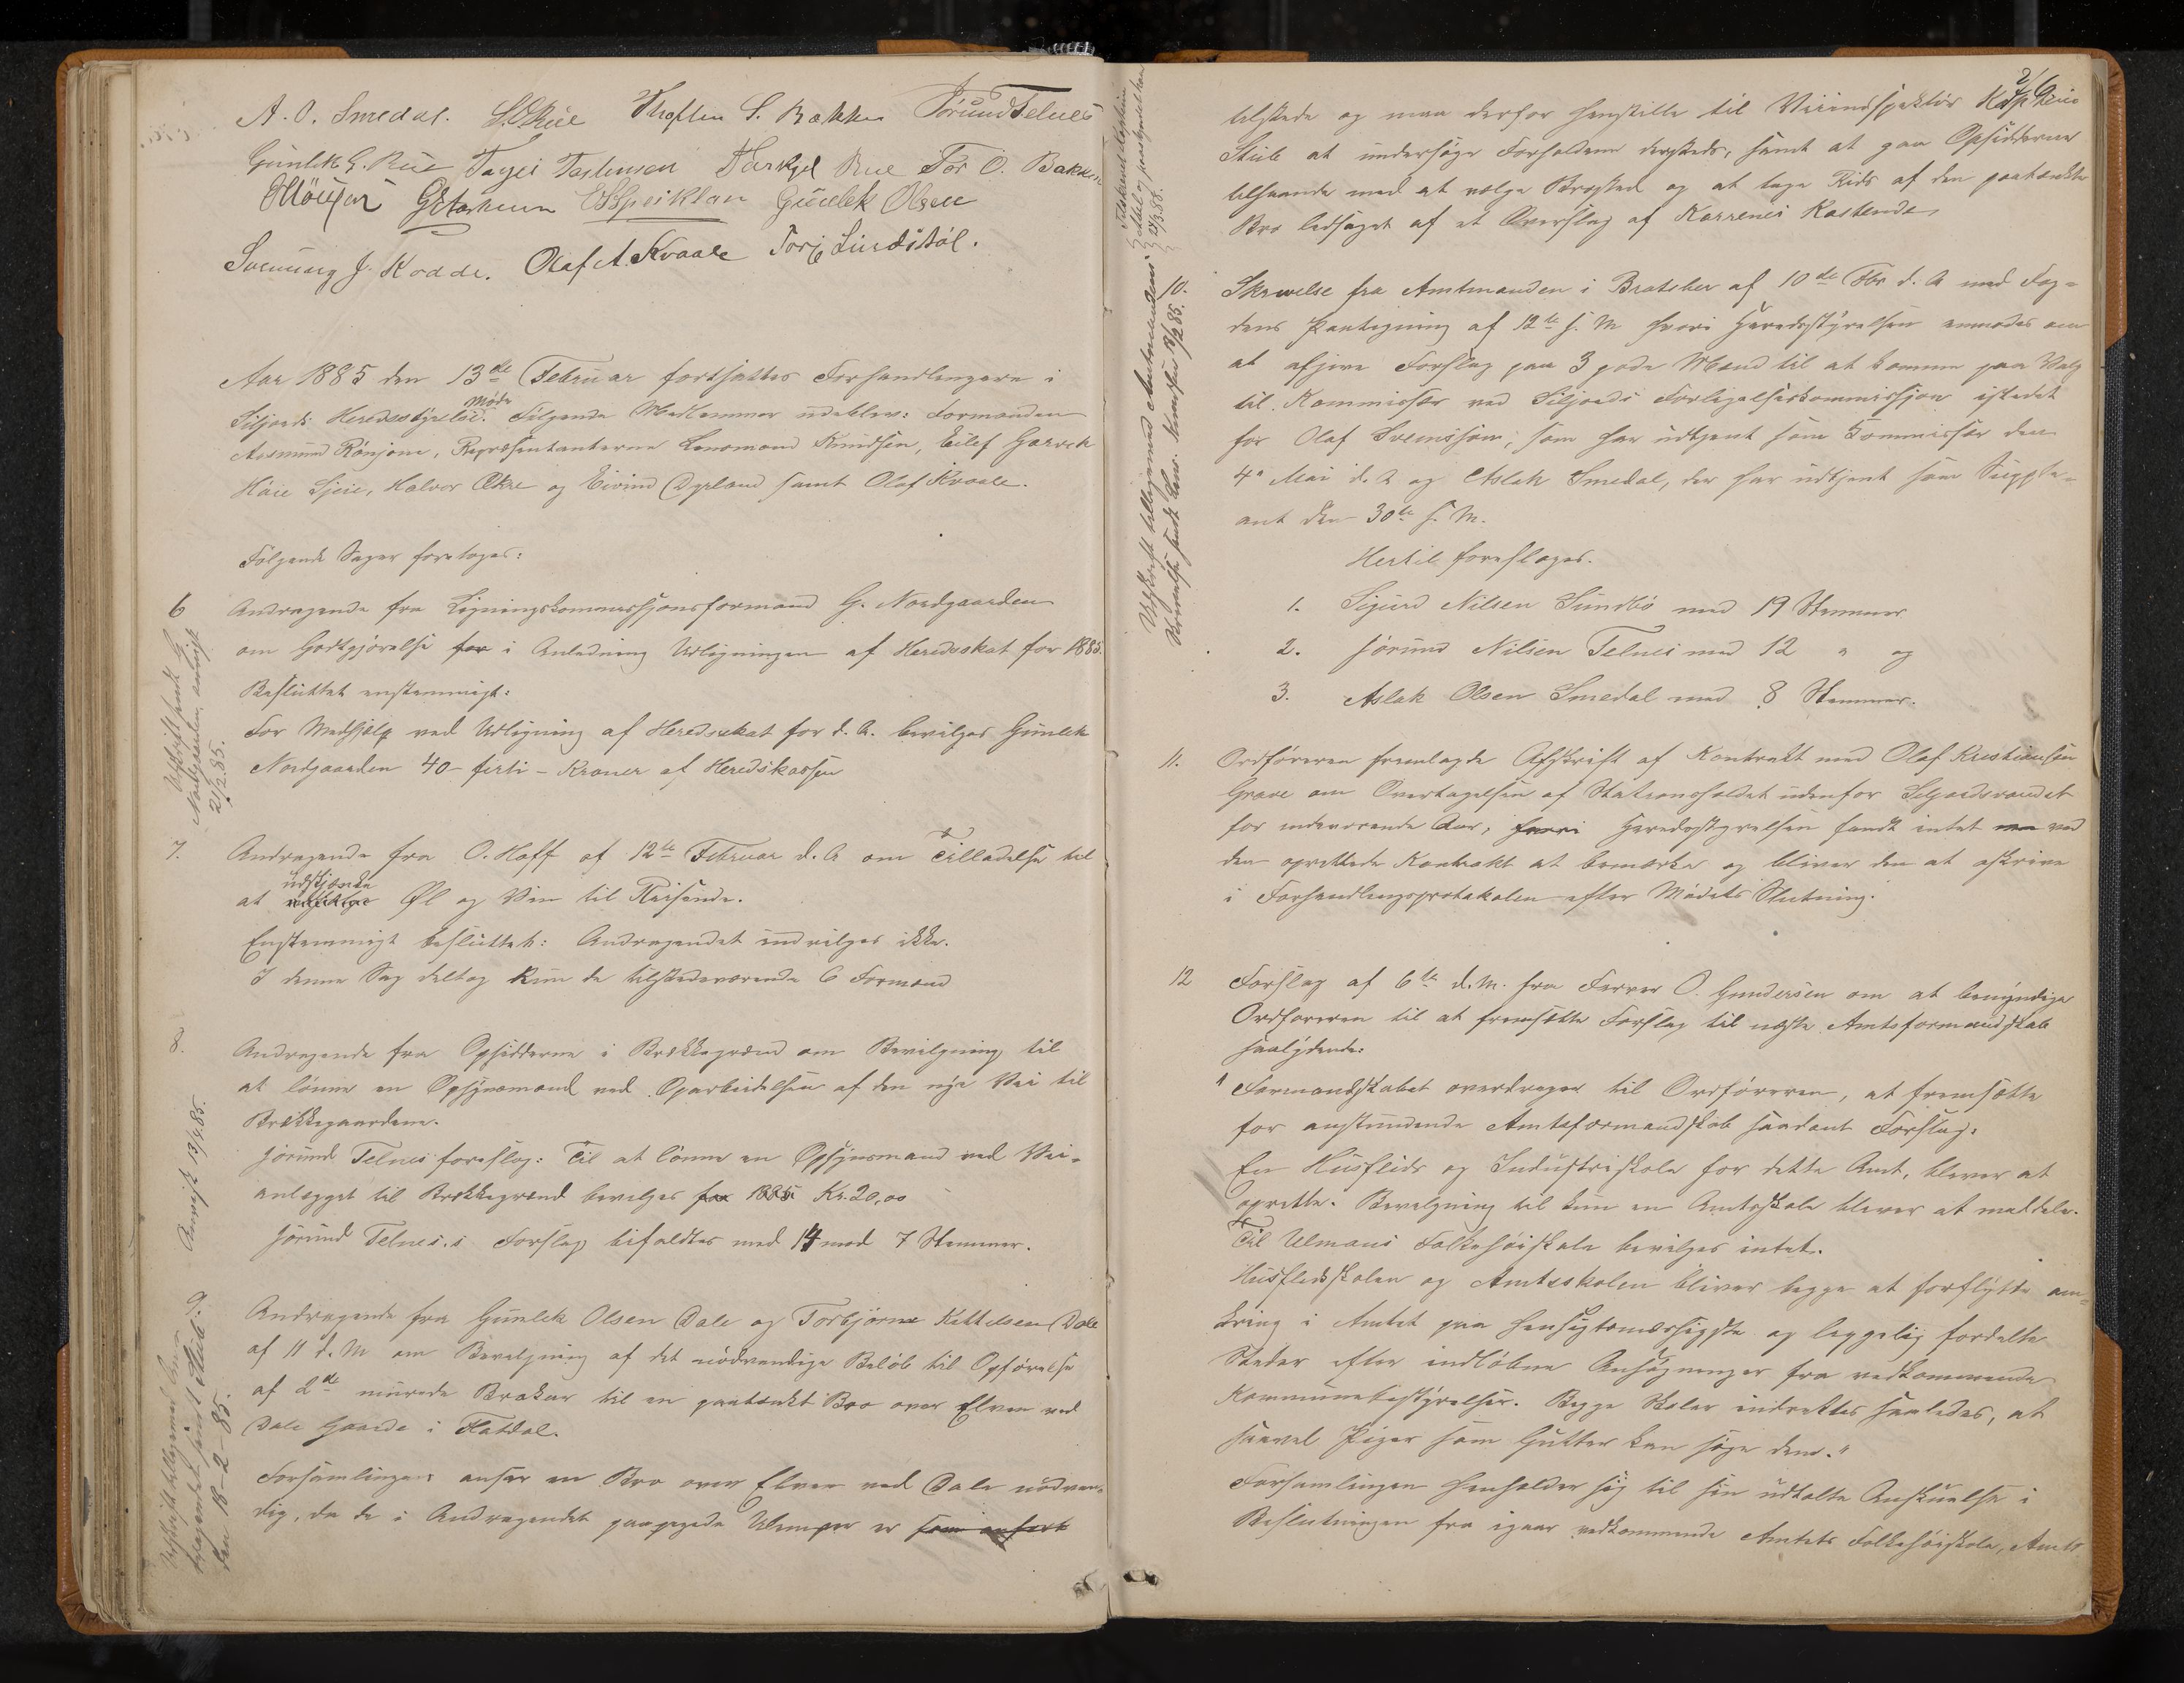 A. O. Smedal. Thoften S. Bakken Jørund Telnes
Gunlek G. Rue Targei Taslensen Tarkjel Rue Tor O. Bakken
Gunlek Olsen
J. Kodde. Olaf A. Kvaale Torj Lindstøl.
Aar 1885 den 13de Februar fortsattes Forhandlingerne i
Siljords Heredsstyrelses Møde. Følgende Medlemmer udeblev: Formanden
Aasmund Rønjom, Repræsentanterne Lensmand Knudsen, Eilef Garvek
Høie Sjeie, Halvor Økre og Eivind Dyrland samt Olaf Kvaale.
Følgende Sager foretoges:
6 Andragende fra Ligningskommissjonsformand G. Nordgaarden
om Godtgjørelse for i Anledning Udligningen af Heredsskat for 1885.
Besluttet enstemmigt:
For Medhjælp ved Udligning af Heredsskat for d. A. bevilges Gunlek
Nordgaarden 40 - førti - Kroner af Heredskassen
Udskrift sendt G.
Nordgaarden
21/2.85.
7. Andragende fra O. Hoff af 12te Februar d. A om Tilladelse til
at udskjænke Øl og Vin til Reisende.
Enstemmigt besluttet: Andragendet indvilges ikke.
I denne Sag deltog kun de tilstedeværende 6 Formænd
8. Andragende fra Opsidderne i Brækkegrænd om Bevilgning til
at lønne en Opsynsmand ved Oparbeidelsen af den nye Vei til
Brækkegaardene.
Jørund Telnes foreslog: Til at lønne en Opsynsmand ved Vei-
anlægget til Brækkegrænd bevilges for 1885 Kr. 20,00
Jørund Telnes.s Forslag bifaldtes med 14 mod 7 Stemmer.
Anvist 13/4.85.
9. Andragende fra Gunlek Olsen Dale og Torbjørn Kittelsen Dale
af 11 d. M om Bevilgning af det nødvendige Beløb til Opførelse
af 2de murede Brokar til en paatænkt Bro over Elven ved
Dale Gaarde i Flatdal.
Forsamlingen anser en Bro over Elven ved Dale nødven-
dig, da de i Andragendet paapegede Ulemper er som anført
den 18-2-85.
2/6
tilstede og maa derfor henstille til Veiinspektør Kaptein
Stub at undersøge Forholdene dersteds, samt at gaa Opsidderne
tilhaande med at vælge Brosted og at tage Rids af den paatænkte
Bro ledsaget af et Overslag af Karrenes Kostende.
21/3.85.
10. Skrivelse fra Amtmanden i Bratsber af 10de Fbr d. A med Fog-
dens Paategning af 12te s. M hvori Heredsstyrelsen anmodes om
at afgive Forslag paa 3 gode Mænd til at komme paa Valg
til Kommissær ved Siljords Forligelseskommissjon istedet
for Olaf Sveinsson, som har udtjent som Kommissær den
4de Mai d. A og Aslak Smedal, der har udtjent som Supple-
ant den 30te s. M.
Hertil foreslages.
1. Sigurd Nilsen Sundbø med 19 Stemmer
2. Jørund Nilsen Telnes med 12 " og
3. Aslak Olsen Smedal med 8 Stemmer.
11. Ordføreren fremlagde Afskrift af Kontrakt med Olaf Kristiansen
Grave om Overtagelsen af Stationsholdet udenfor Seljordsvandet
for indeværende Aar, hvori Heredsstyrelsen fandt intet ved
den oprettede Kontrakt at bemærke og bliver den at afskrive
i Forhandlingsprotokolen efter Mødets Slutning.
12 Forslag af 6te d. M. fra Ferver O. Gundersen om at bemyndige
Ordføreren til at fremsætte Forslag til næste Amtsformandskab
saalydende:
" Formandskabet overdrager til Ordføreren, at fremsætte
for anstundende Amtsformandskab saadant Forslag:
En Husflids og Industriskole for dette Amt, bliver at
oprette. Bevilgning til kun en Amtsskole bliver at meddele.
Til Ulmans Folkehøiskole bevilges intet.
Husflidsskolen og Amtsskolen bliver begge at forflytte om-
kring i Amtet paa hensigtsmæssigste og beqvemmelig fordelte
Steder efter indløbne Ansøgninger fra vedkommende
Kommunebestyrelser. Begge Skoler indrettes saaledes, at
saavel Piger som Gutter kan søge dem."
Forsamlingen henholder sig til sin udtalte Anskuelse i
Beslutningen fra igaar vedkommende Amtets Folkehøiskole, Amts